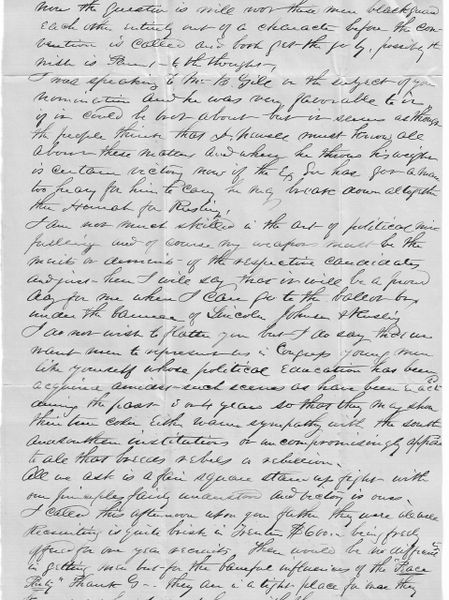 now the question is will not these men blackguard
each other entirely out of a character before the con-
vention is called and both get the go by, possibly the
wish is to the thought,
I was speaking to Mr. B Gill on the subject of your
nomination and he was very favorable to it
if it could be brot about - but it seems as though
the people think that must know all
about these matters and where he throws his weight
is certain victory now if the Ex Gov has got a man
too heavy for him to carry he may break down altogether
then Hurrah for Rusling!
I am not much skilled in the art of political
and of course my weapons must be the
merits or demerits of the respective candidates
and just here I will say that it will be a proud
day for me when I can go to the ballot box
under the banner of Lincoln Johnson & Rusling
I do not wish to flatter you but I do say that we
want men to represent us in Congress young men
like yourself whose political Education has been
acquired amidst such scenes as have been
during the past 3 or 4 years so that they may show
their true color Either warm sympathy with the south
and southern institutions or uncompromisingly opposed
to all that breeds rebels or rebellion.
All we ask is a fair square stand up fight with
our principles fairly understood and victory is ours.
I called this afternoon upon your father they were all well
Recruiting is quite brisk in Trenton $600.- being freely
offered for one year recruits, there would be no difficulty
in getting men but for the baneful influences of the Peace
Party" Thank G- they are in a tight place for once they